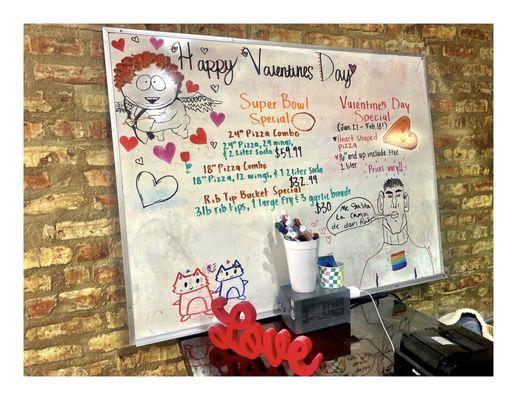 Happy Valentines Day
Super Bowl
Special
24" Pizza Combo
24" Pizza, 24 wings,
& 2 liter soda $59.99
18" Pizza Combo
18" Pizza, 12 wings, & 1 2 liter soda
$32.99
Rib Tip Bucket Special
3lb rib tips, 1 large fry & 3 garlic breads
$30
Valentine's Day
Special
(Jan. 27 - Feb 18!)
Heart shaped
pizza
16" and up include free
2 liter
Prices vary!!
Me gusta
La comida
de don
Love